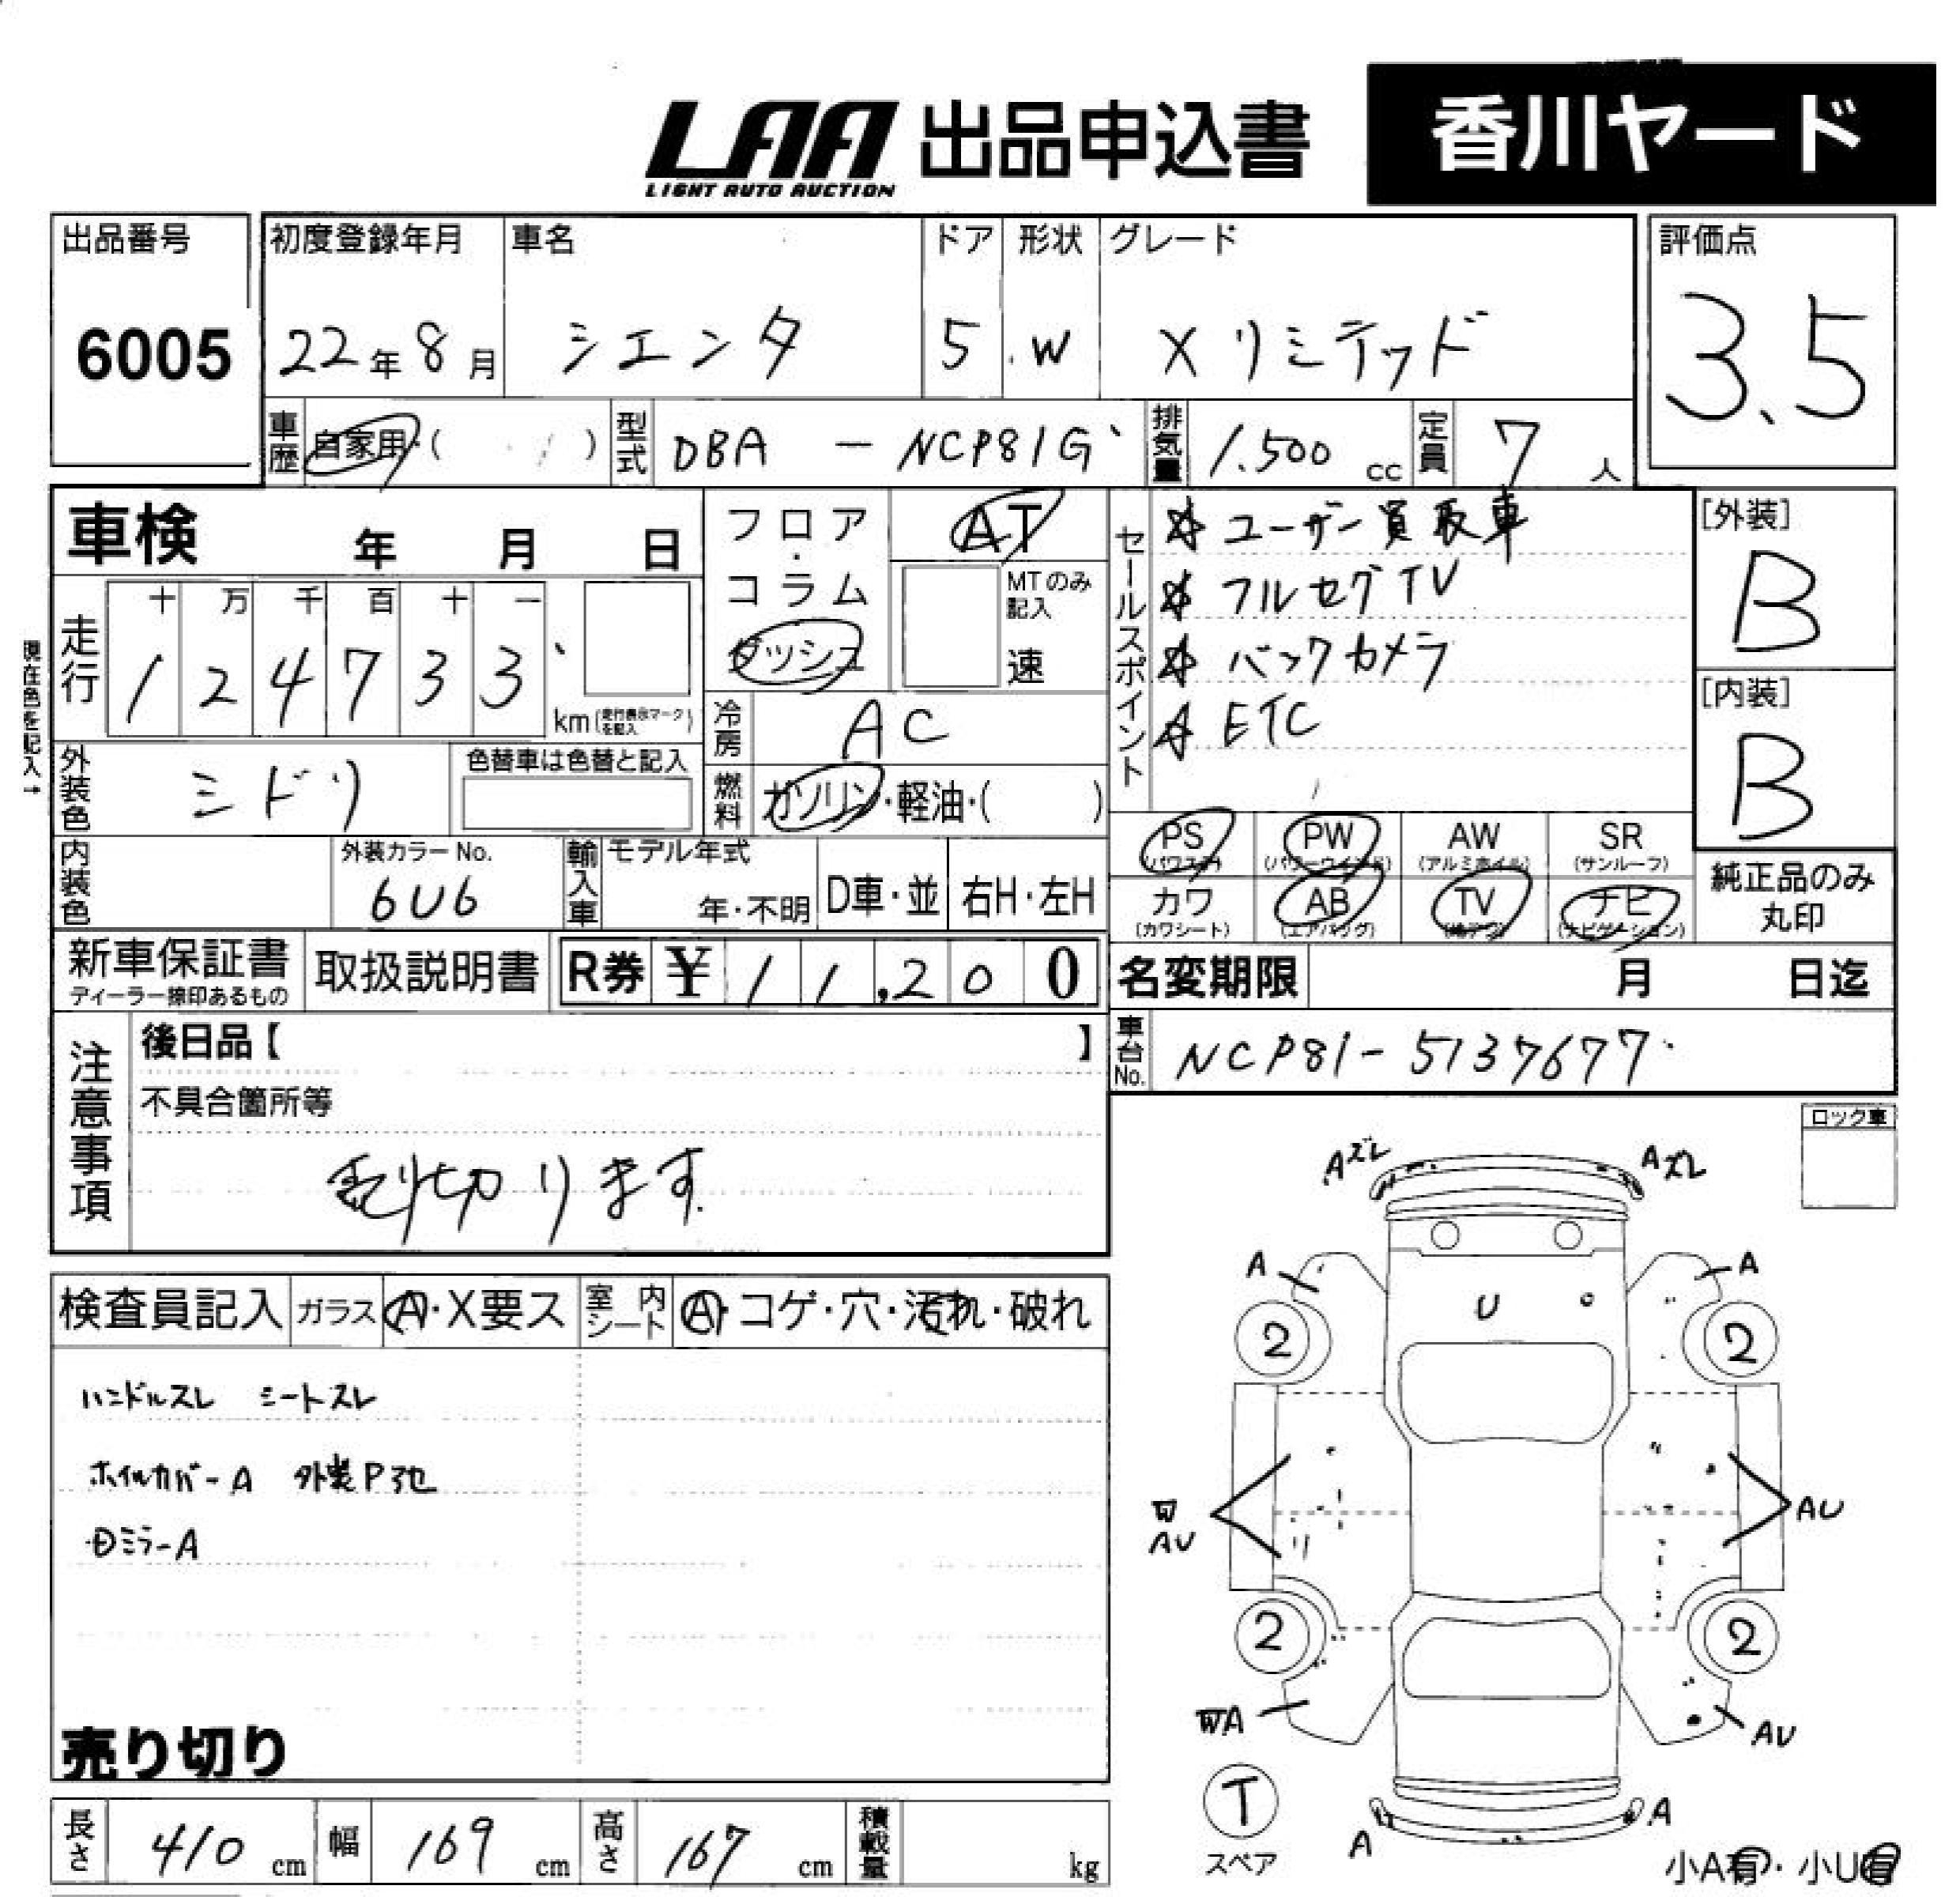 LAA 出品申込書 香川ヤード
LIGHT AUTO AUCTION
出品番号 初度登録年月 車名 ドア 形状 グレード 評価点
6005 22年8月 シエンタ 5 W Xリミテッド 3.5
車歴 自家用・( ) 型式 DBA - NCP81G 排気量 1.500 cc 定員 7 人
車検 年 月 日 フロア・コラム ダッシュ AT MTのみ記入 速
セールスポイント
☆ ユーザー買取車
☆ フルセグTV
☆ バックカメラ
☆ ETC
[外装]
B
[内装]
B
現在色を記入→
走行 十 万 千 百 十 一
1 2 4 7 3 3 km(走行表示マークを記入)
冷房 AC
外装色 ミドリ 色替車は色替と記入 燃料 ガソリン・軽油・( )
PS (パワステ) PW (パワーウインド) AW (アルミホイル) SR (サンルーフ)
カワ (カワシート) AB (エアバッグ) TV ナビ (ナビゲーション)
純正品のみ
丸印
内装色 外装カラーNo. 6U6 輸入車 モデル年式 年・不明 D車・並 右H・左H
新車保証書 取扱説明書 R券 ¥ 1 1,2 0 0 名変期限 月 日迄
ディーラー捺印あるもの
車台No. NCP81-5137677
注意事項
後日品【 】
不具合箇所等
売り切ります
ロック車
検査員記入 ガラス A・X要ス 室内シート A・コゲ・穴・汚れ・破れ
ハンドルスレ シートスレ
ホイルカバーA 外装P
ミラーA
売り切り
Aズレ Aズレ
A A
U
2 2
W
AU AU
2 2
WA AU
T
スペア
A A
小A有・小U有
長さ 410 cm 幅 169 cm 高さ 167 cm 積載量 kg